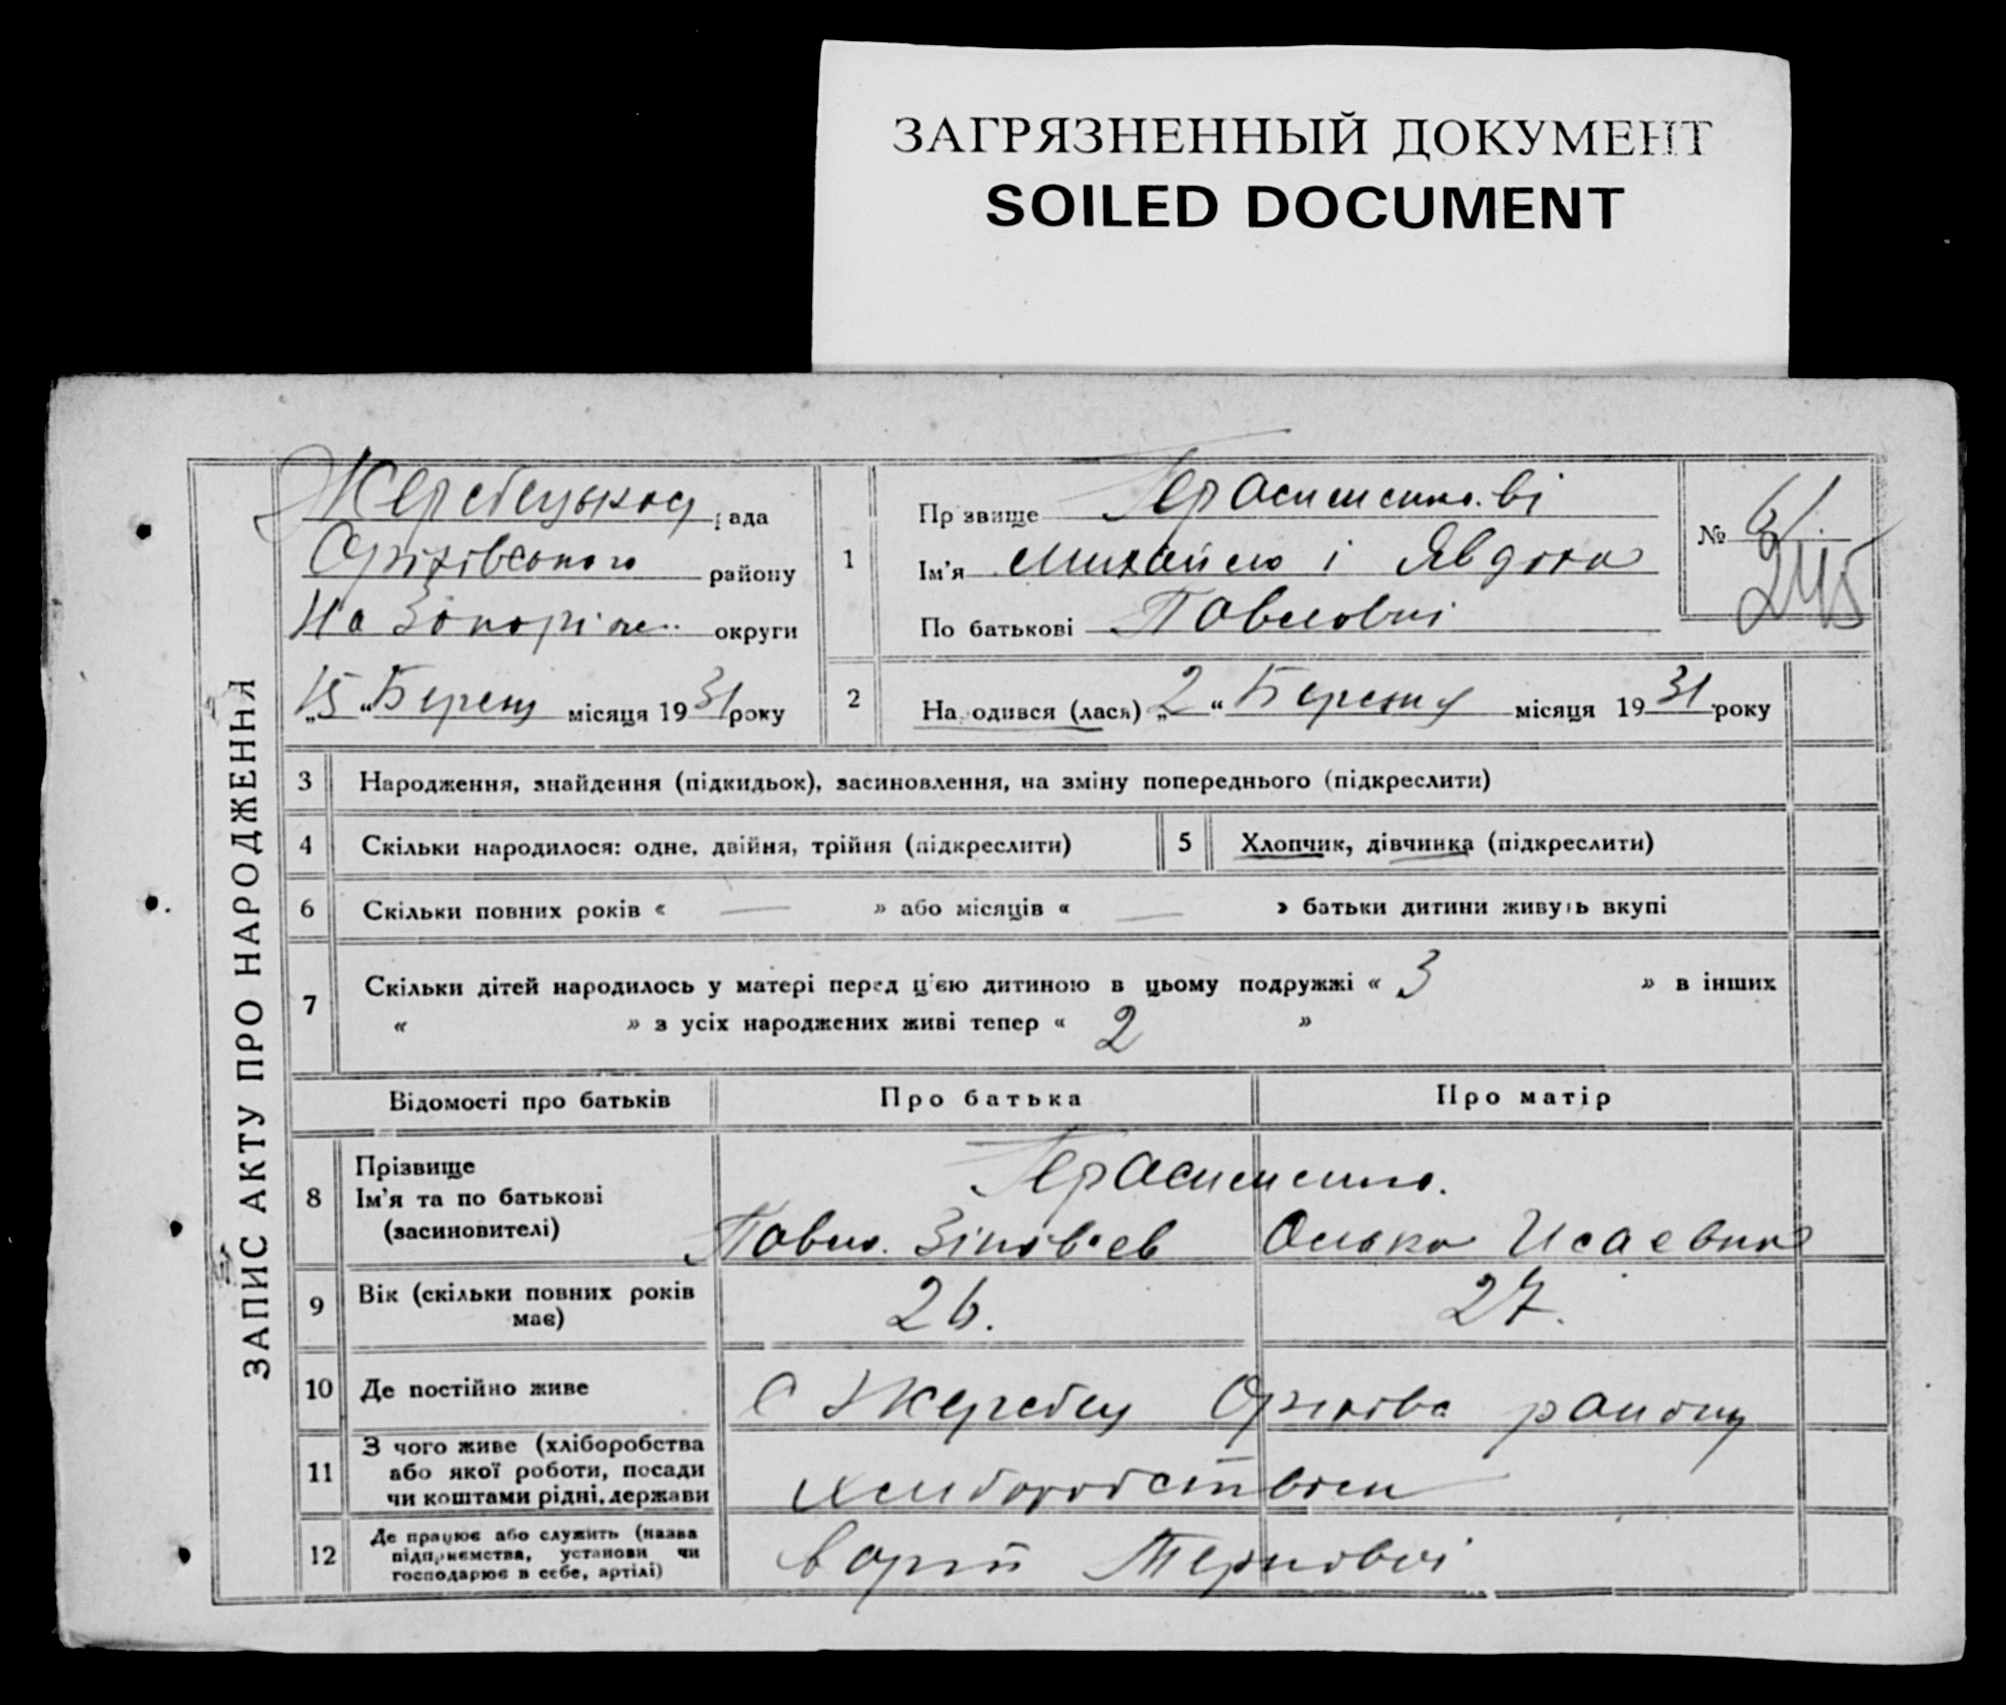 ЗАГРЯЗНЕННЫЙ ДОКУМЕНТ
SOILED DOCUMENT
ЗАПИС АКТУ ПРО НАРОДЖЕННЯ
Жеребецька рада
Оріхівського району
На Запоріж.. округи
„15“ Березня місяця 1931 року
1
Прізвище Герасименкові
Ім'я Михайло і Явдоха
По батькові Павловні
№ 61
245
2
Народився (лася) „2“ Березня місяця 1931 року
3 Народження, знайдення (підкидьок), засиновлення, на зміну попереднього (підкреслити)
4 Скільки народилося: одне, двійня, трійня (підкреслити) 5 Хлопчик, дівчинка (підкреслити)
6 Скільки повних років « — » або місяців « — » батьки дитини живуть вкупі
7 Скільки дітей народилось у матері перед ц'єю дитиною в цьому подружжі « 3 » в інших
« » з усіх народжених живі тепер « 2 »
Відомості про батьків Про батька Про матір
8 Прізвище
Ім'я та по батькові
(засиновителі)
Герасименко.
Павло. Зіновєв Олька Исаевна
9 Вік (скільки повних років
має)
26. 27.
10 Де постійно живе С Жеребец Оріхівс району
11 З чого живе (хліборобства
або якої роботи, посади
чи коштами рідні, держави
хлиборобством
12 Де працює або служить (назва
підприємства, установи чи
господарює в себе, артілі)
в арти